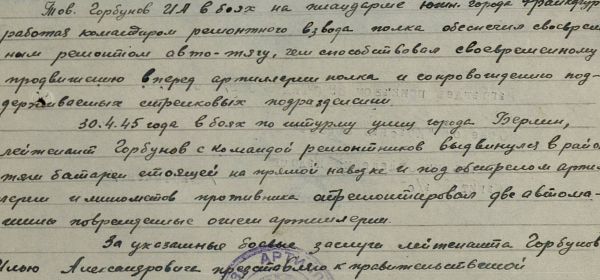 Тов. Горбунов ИА в боях на плацдарме южн. города Франкфурт
работая командиром ремонтного взвода полка обеспечил своеврем
ным ремонтом авто-тягу, чем способствовал своевременному
продвижению вперед артиллерии полка и сопровождению под-
держиваемых стрелковых подразделений.
30.4.45 года в боях по штурму улиц города Берлин,
лейтенант Горбунов с командой ремонтников выдвинулся в район
тяги батареи стоящей на прямой наводке и под обстрелом артил
лерии и минометов противника отремонтировал две автома-
шины поврежденные огнем артиллерии.
За указанные боевые заслуги лейтенанта Горбунов
Илью Александровича представляю к правительственной
АРТИЛ